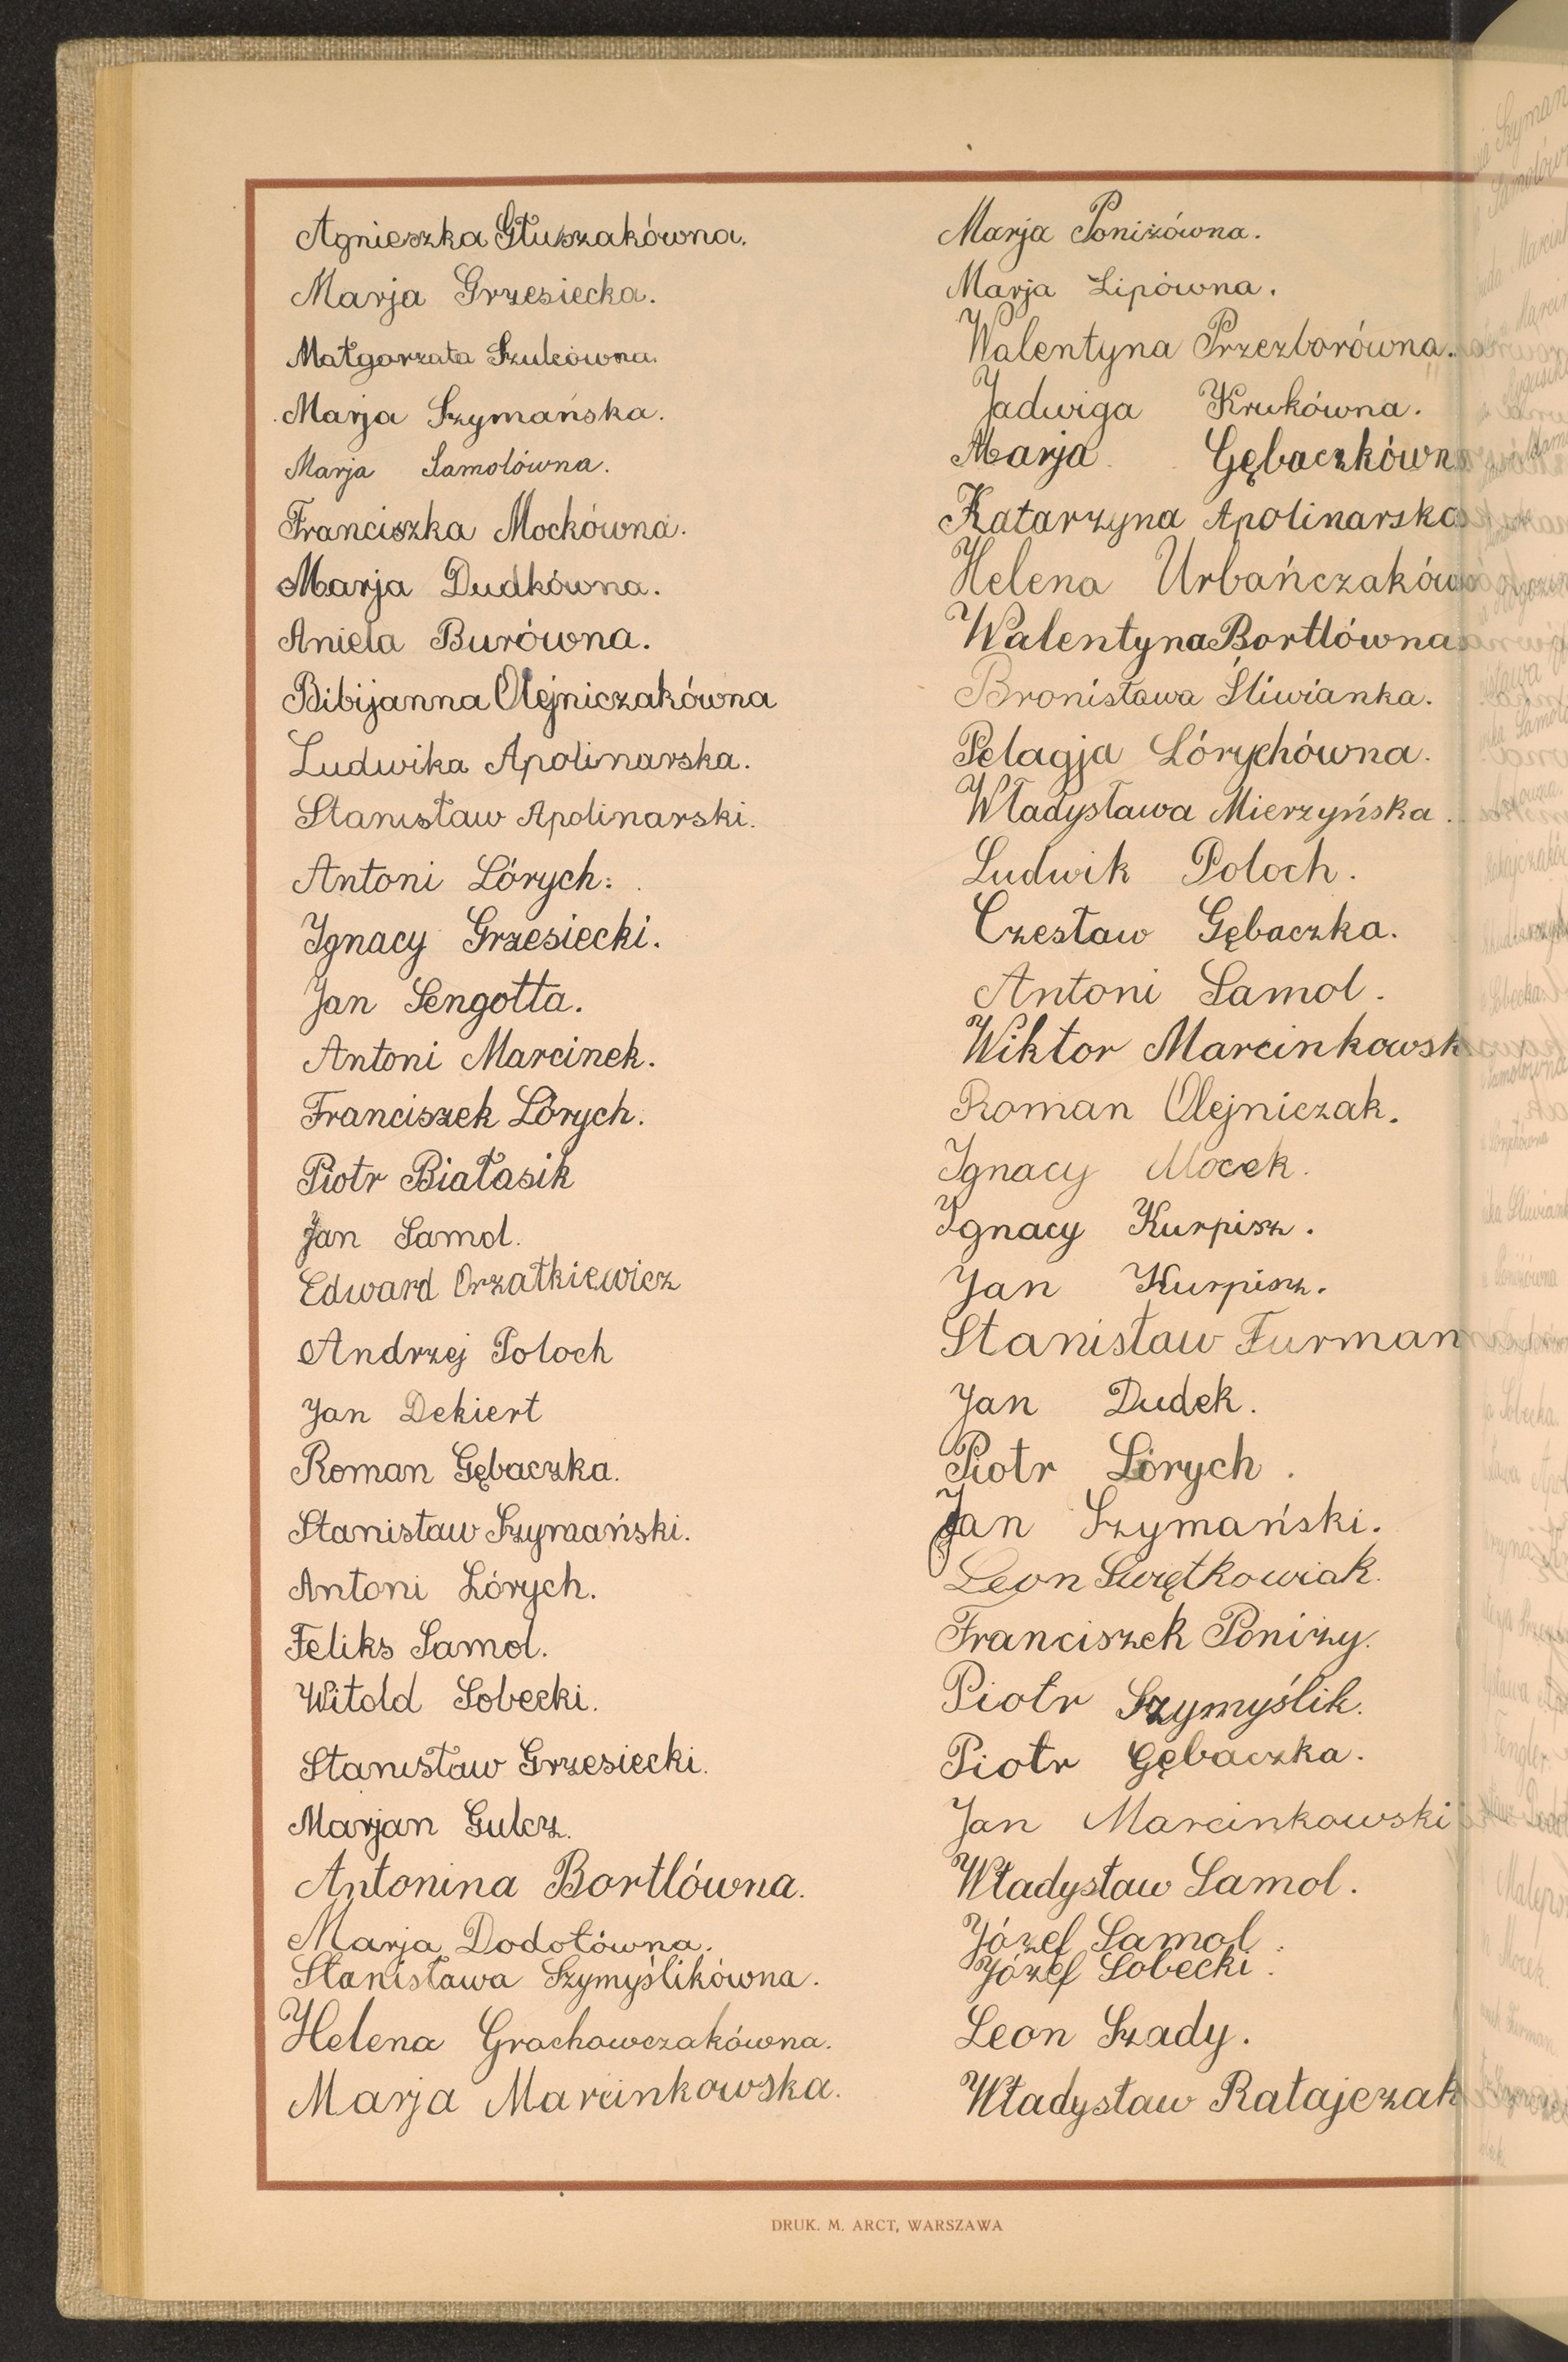 Agnieszka Głuszakówna.
Marja Grzesiecka.
Małgorzata Szulcówna.
Marja Szymańska.
Marja Samolówna.
Franciszka Mockówna.
Marja Dudkówna.
Aniela Burówna.
Bibijanna Olejniczakówna
Ludwika Apolinarska.
Stanisław Apolinarski.
Antoni Lórych.
Ignacy Grzesiecki.
Jan Sengotta.
Antoni Marcinek.
Franciszek Lórych.
Piotr Białasik
Jan Samol.
Edward Orzałkiewicz
Andrzej Poloch
Jan Dekiert
Roman Gębaczka.
Stanisław Szymański.
Antoni Lórych.
Feliks Samol.
Witold Sobecki.
Stanisław Grzesiecki.
Marjan Gulcz.
Antonina Bortlówna.
Marja Dodotówna.
Stanisława Szymyślikówna.
Helena Grochowczakówna.
Marja Marcinkowska.
Marja Poniżówna.
Marja Lipówna.
Walentyna Przezborówna.
Jadwiga Krukówna.
Marja Gębaczkówn
Katarzyna Apolinarska
Helena Urbańczaków
Walentyna Bortlówna
Bronisława Śliwianka.
Pelagja Lórychówna.
Władysława Mierzyńska.
Ludwik Poloch.
Czesław Gębaczka.
Antoni Samol.
Wiktor Marcinkowsk
Roman Olejniczak.
Ignacy Mocek.
Ignacy Kurpisz.
Jan Kurpisz.
Stanisław Furman
Jan Dudek.
Piotr Lórych.
Jan Szymański.
Leon Swiętkowiak.
Franciszek Poniży.
Piotr Szymyślik.
Piotr Gębaczka.
Jan Marcinkowski
Władysław Samol.
Józef Samol.
Józef Sobecki.
Leon Szady.
Władysław Ratajczak
DRUK. M. ARCT, WARSZAWA